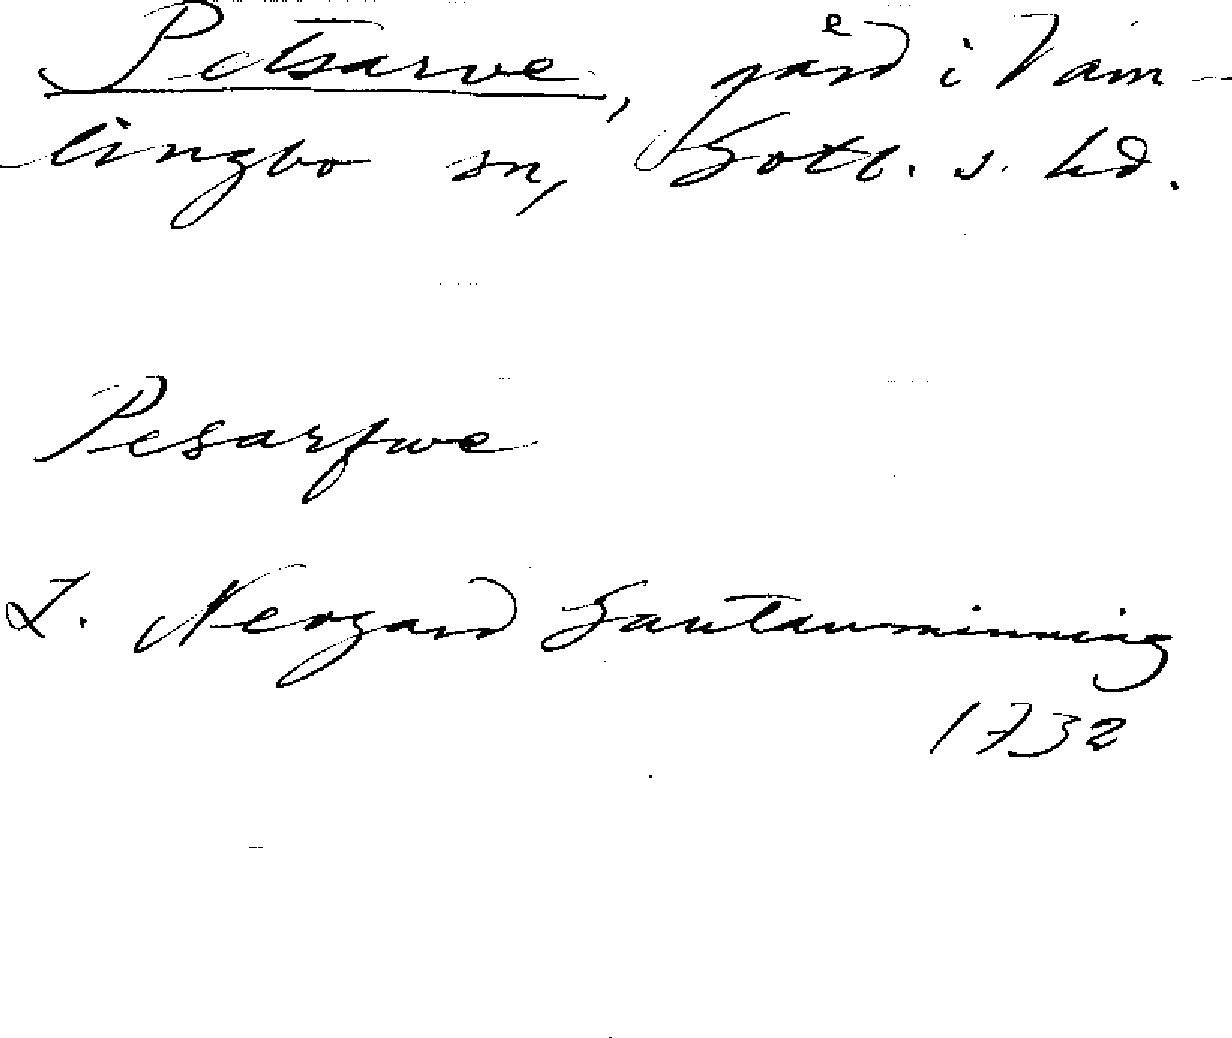 Petsarve, gård i Vam-
lingbo sn, Gotl. s. hd.
Pesarfwe
L. Neogard Gautauminning
1732